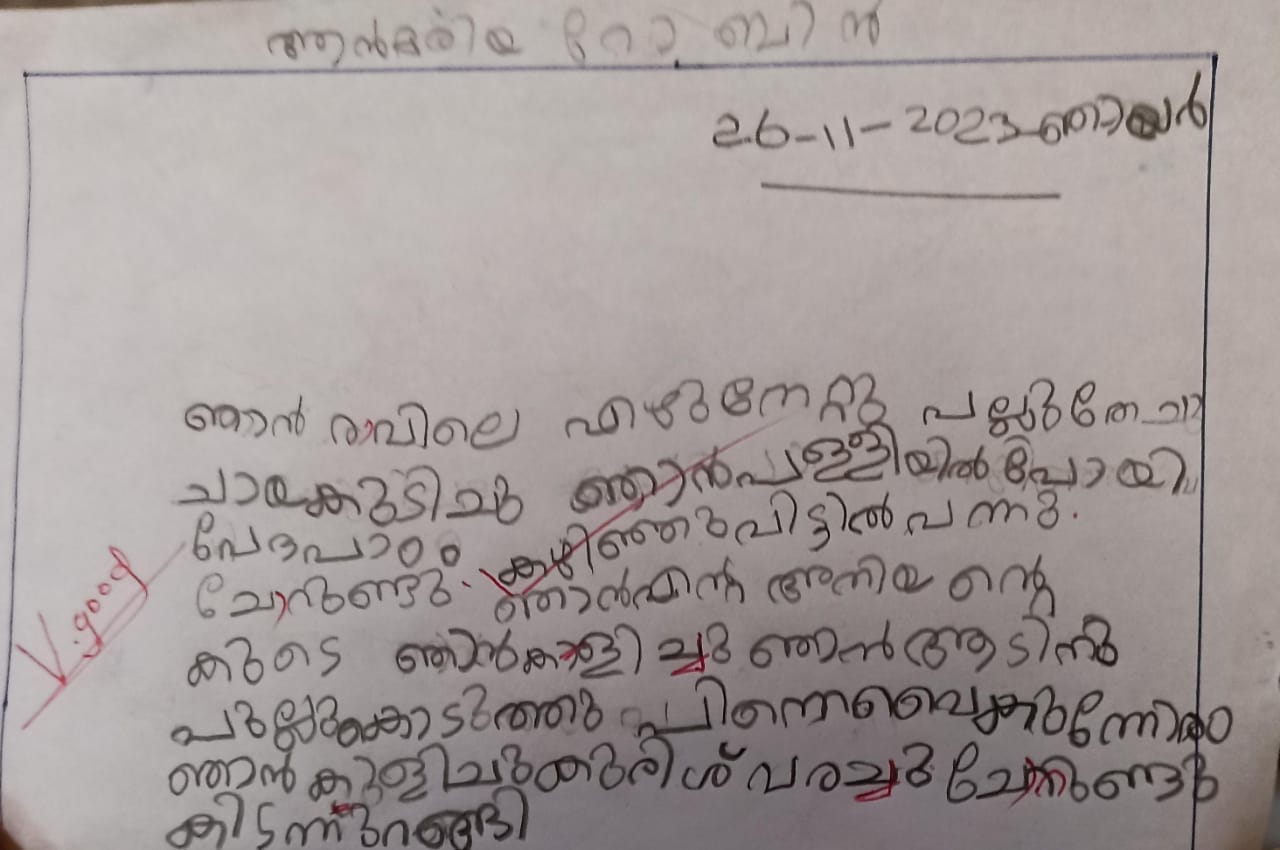 ആൻമരിയ റോബിൻ
26-11-2023 ഞായർ
ഞാൻ രാവിലെ എഴുന്നേറ്റു പല്ലുതേച്ചു
ചായകുടിച്ചു ഞാൻപള്ളിയിൽപോയി
വേദപാഠം കഴിഞ്ഞുവിട്ടിൽവന്നു.
ചോറുണ്ടു. ഞാൻഎന്റെ അനിയന്റെ
കുടെ ഞാൻകളിച്ചു ഞാൻആടിനു
പുല്ലുകൊടുത്തു പിന്നെവൈകുന്നേരം
ഞാൻ കുളിച്ചുകുരിശ് വരച്ചു ചോറുണ്ടു
കിടന്നുറങ്ങി
V.good